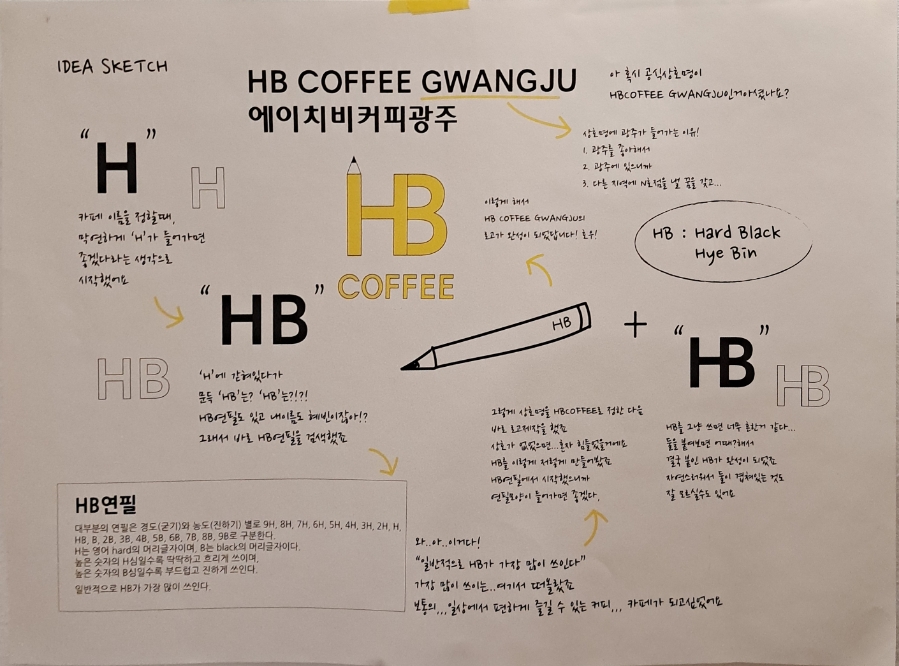 IDEA SKETCH
HB COFFEE GWANGJU
에이치비커피광주
아 혹시 공식상호명이
HBCOFFEE GWANGJU인거아셨나요?
상호명에 광주가 들어가는 이유!
1. 광주를 좋아해서
2. 광주에 있으니까
3. 다른 지역에 N호점을 낼 꿈을 갖고...
“H”
H
카페 이름을 정할때,
막연하게 'H'가 들어가면
좋겠다라는 생각으로
시작했어요
“HB”
HB
'H'에 갇혀있다가
문득 'HB'는? 'HB'는?!?!
HB연필도 있고 내이름도 혜빈이잖아!?
그래서 바로 HB연필을 검색했죠
HB연필
대부분의 연필은 경도(굳기)와 농도(진하기) 별로 9H, 8H, 7H, 6H, 5H, 4H, 3H, 2H, H,
HB, B, 2B, 3B, 4B, 5B, 6B, 7B, 8B, 9B로 구분한다.
H는 영어 hard의 머리글자이며, B는 black의 머리글자이다.
높은 숫자의 H심일수록 딱딱하고 흐리게 쓰이며,
높은 숫자의 B심일수록 부드럽고 진하게 쓰인다.
일반적으로 HB가 가장 많이 쓰인다.
와..아..이거다!
“일반적으로 HB가 가장 많이 쓰인다”
가장 많이 쓰이는..여기서 떠올랐죠
보통의,,,일상에서 편하게 즐길 수 있는 커피,,, 카페가 되고싶었어요
그렇게 상호명을 HBCOFFEE로 정한 다음
바로 로고제작을 했죠
상호가 없었으면...혼자 힘들었을거에요
HB를 이렇게 저렇게 만들어봤죠
HB연필에서 시작했으니까
연필모양이 들어가면 좋겠다,
HB
+
“HB”
HB
HB를 그냥 쓰면 너무 흔한거 같다...
둘을 붙여보면 어때?해서
결국 붙인 HB가 완성이 되었죠
자연스러워서 둘이 겹쳐있는 것도
잘 모르실수도 있어요
이렇게 해서
HB COFFEE GWANGJU의
로고가 완성이 되었답니다! 호우!
HB
COFFEE
HB : Hard Black
Hye Bin